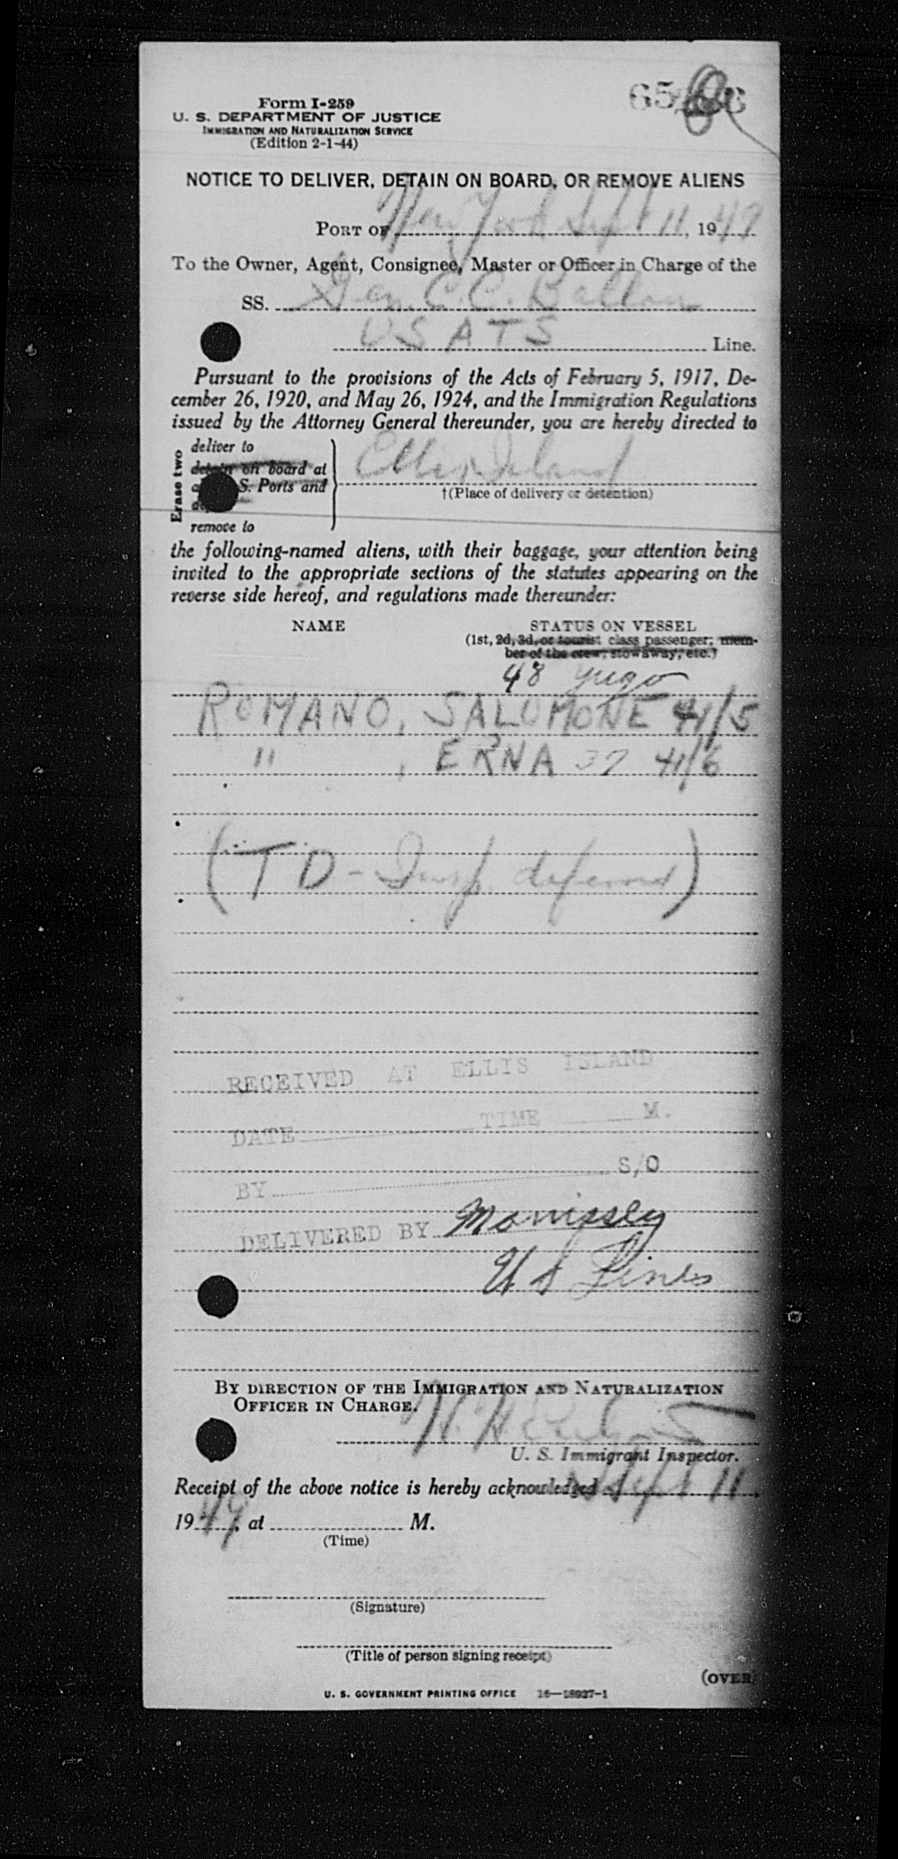 Form I-259
U. S. DEPARTMENT OF JUSTICE
IMMIGRATION AND NATURALIZATION SERVICE
(Edition 2-1-44)
NOTICE TO DELIVER, DETAIN ON BOARD, OR REMOVE ALIENS
PORT OF New York Sept 11, 1949
To the Owner, Agent, Consignee, Master or Officer in Charge of the
SS. Gen. C.C. Ballou
USATS Line.
Pursuant to the provisions of the Acts of February 5, 1917, De-
cember 26, 1920, and May 26, 1924, and the Immigration Regulations
issued by the Attorney General thereunder, you are hereby directed to
Erase two
deliver to
detain on board at Ellis Island
S. Ports and
†(Place of delivery or detention)
remove to
the following-named aliens, with their baggage, your attention being
invited to the appropriate sections of the statutes appearing on the
reverse side hereof, and regulations made thereunder:
NAME STATUS ON VESSEL
(1st, 2d, 3d, or tourist class passenger; mem-
ber of the crew; stowaway, etc.)
48 Yugo
ROMANO, SALOMONE 41/5
" , ERNA 37 41/6
("TD"- Insp. deferred)
RECEIVED AT ELLIS ISLAND
DATE TIME M.
BY S/O
DELIVERED BY Morrissey
U S Lines
BY DIRECTION OF THE IMMIGRATION AND NATURALIZATION
OFFICER IN CHARGE.
U. S. Immigrant Inspector.
Receipt of the above notice is hereby acknowledged Sept 11,
1949, at M.
(Time)
(Signature)
(Title of person signing receipt)
(OVER)
U. S. GOVERNMENT PRINTING OFFICE 16—18927-1